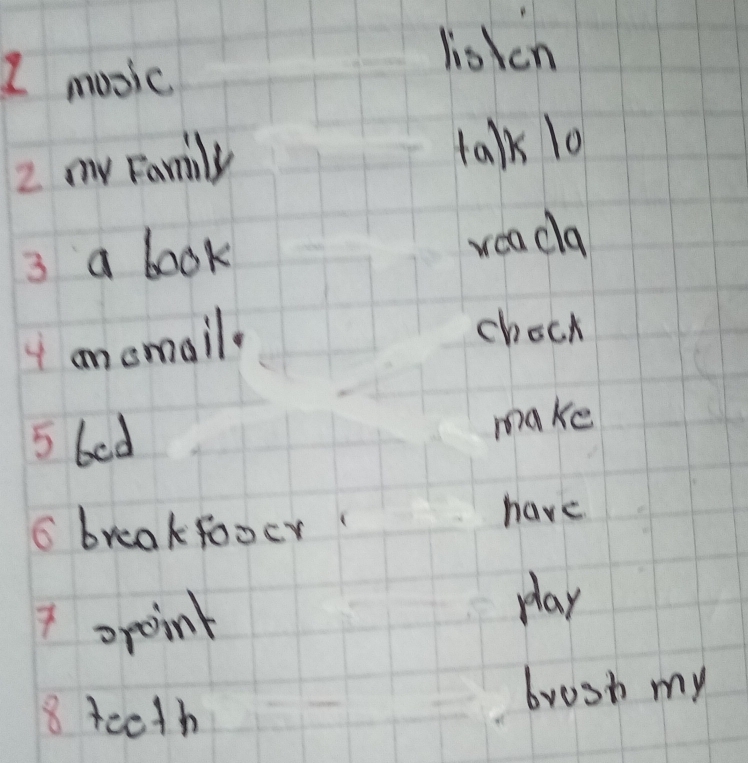 1 mosic listen
2 my Family talk to
3 a book read a
4 an email check
5 bed make
6 breakfoocr have
7 opoint play
8 teeth brosh my